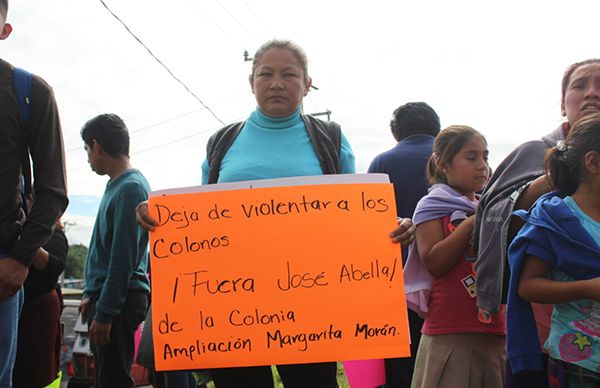 Deja de violentar a los
Colonos
¡Fuera José Abella!
de la Colonia
Ampliación Margarita Morán.